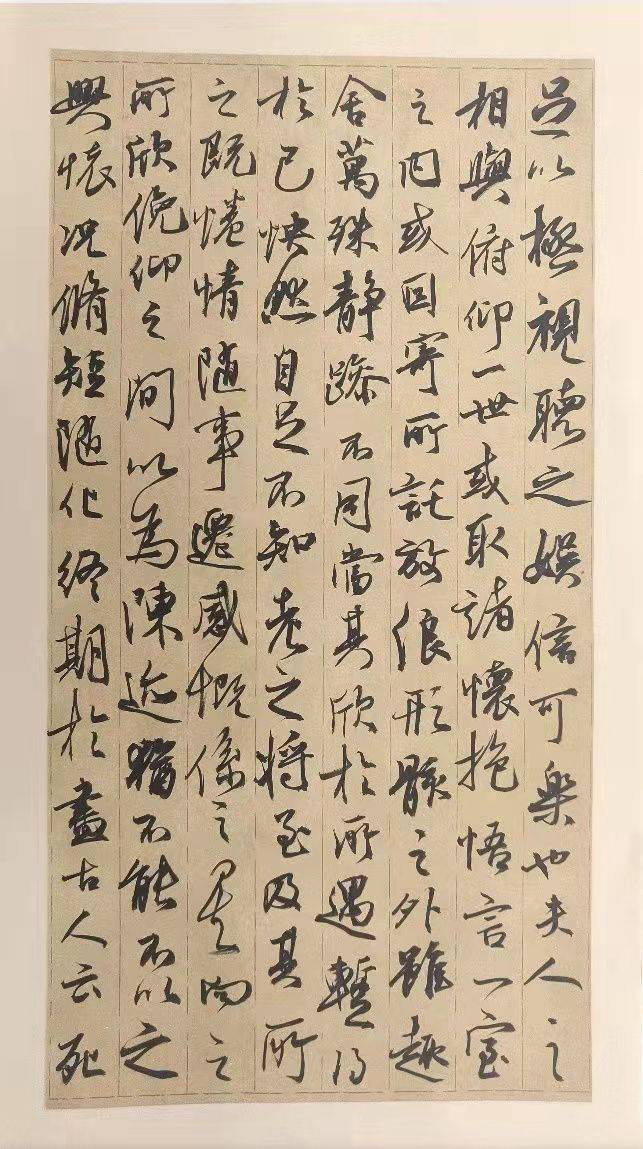 足以極視聽之娛信可樂也夫人之
相與俯仰一世或取諸懷抱悟言一室
之内或因寄所託放浪形骸之外雖趣
舍萬殊靜躁不同當其欣於所遇暫得
於己怏然自足不知老之將至及其所
之既惓情隨事遷感慨係之矣向之
所欣俛仰之閒以為陳迹猶不能不以之
興懷況脩短隨化終期於盡古人云死